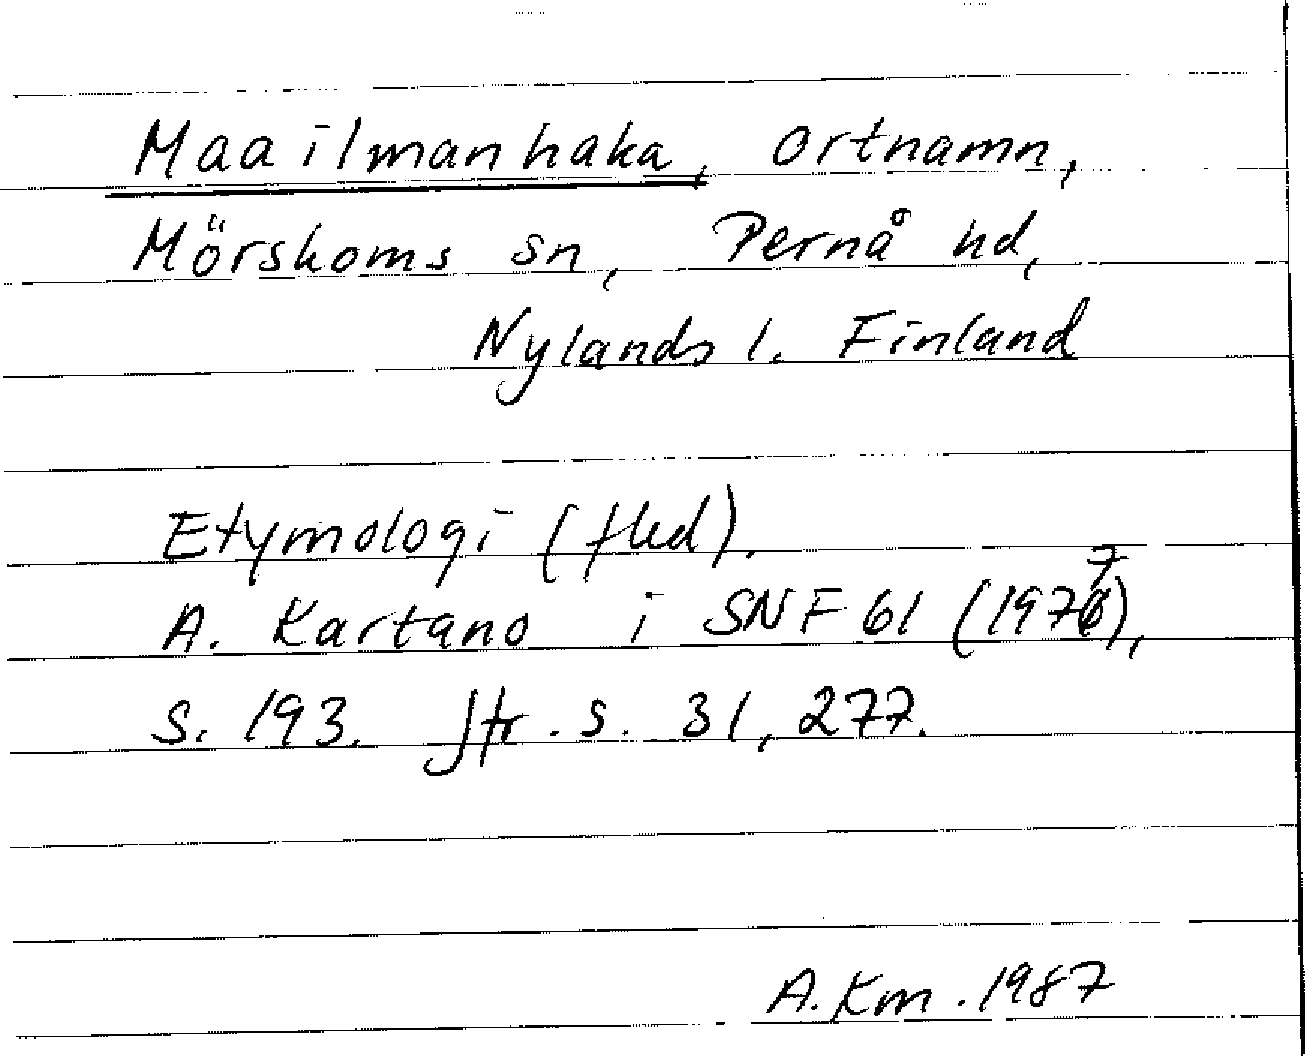 Maailmanhaka, ortnamn,
Mörskoms sn, Pernå hd,
Nylands l. Finland
Etymologi (fled).
A. Kartano i SNF 61 (1977),
s. 193. Jfr. s. 31, 277.
A. Km. 1987